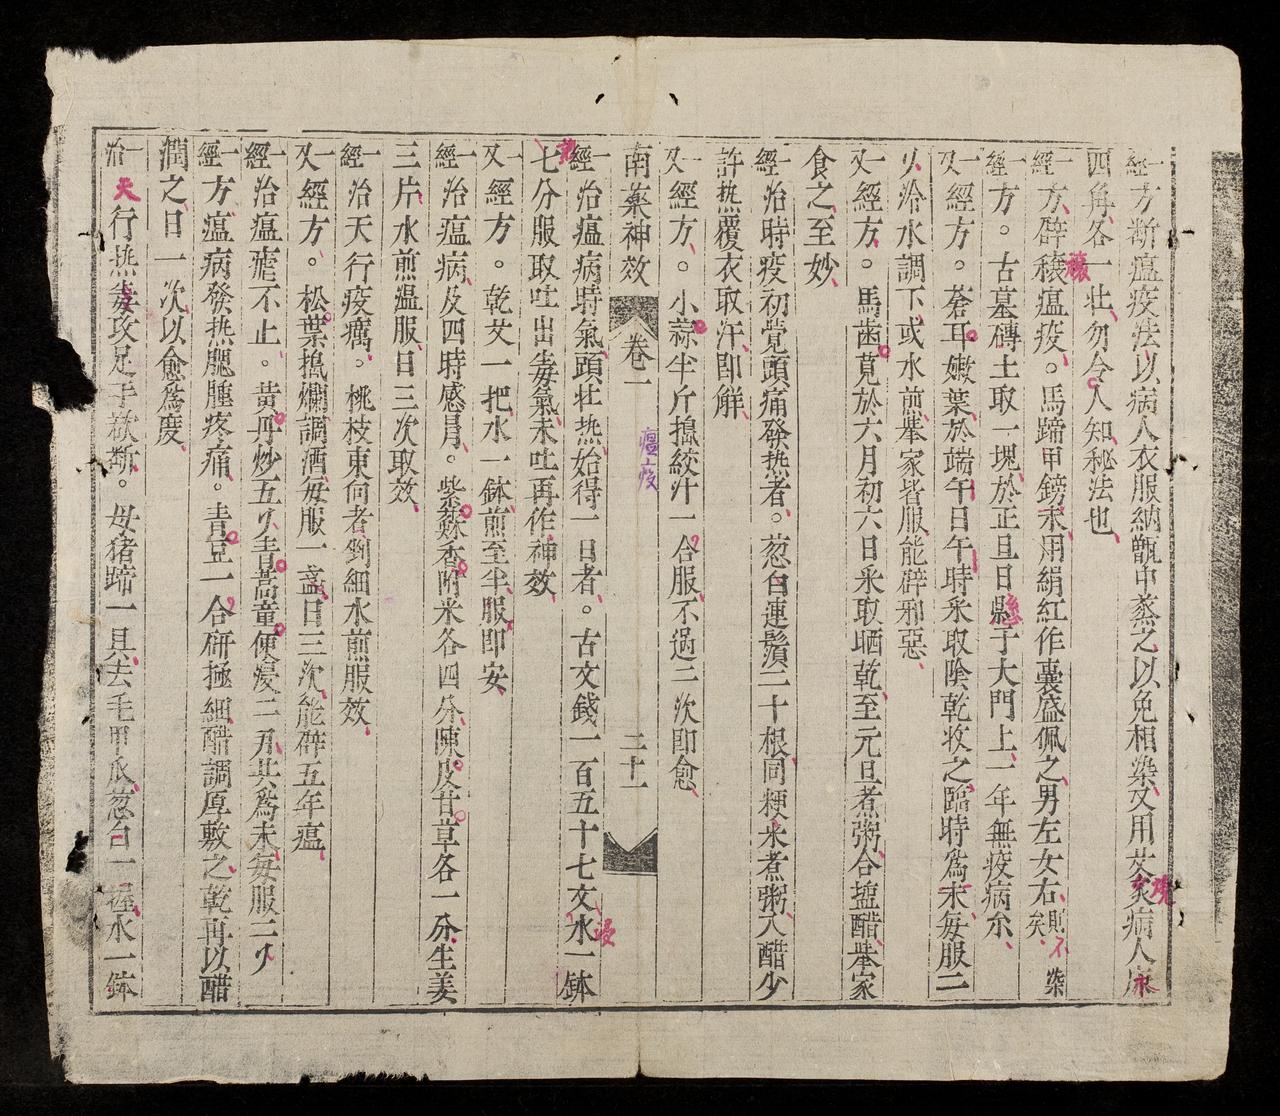 一經方斷瘟疫法以病人衣服納甑中蒸之以免相染又用艾灸病人床
四角各一壮勿令人知秘法也
一經方辟穰瘟疫。馬蹄甲鎊末用絹紅作囊盛佩之男左女右則不染矣
一經方。古墓磚土取一塊於正旦日懸于大門上一年無疫病尒
一又經方。蒼耳嫩葉於端午日午時采取陰乾收之臨時為末每服二
𠆤冷水調下或水煎舉家皆服能辟邪惡
一又經方。馬歯莧於六月初六日采取晒乾至元旦煮粥合塩醋舉家
食之至妙
一經治時疫初覺頭痛發热者。葱白連鬚二十根同粳米煮粥入醋少
許热覆衣取汗即解
一又經方。小蒜半斤搗絞汁一合服不過二次即愈
南藥神效 卷一 二十一
瘟疫
一經治瘟病時氣頭壮热始得一日者。古文錢一百五十七文水一鉢
七分服取吐出毒氣未吐再作神效
一又經方。乾艾一把水一鉢煎至半服即安
一經治瘟病及四時感冒。紫蘇香附米各四分陳皮甘草各一分生姜
三片水煎温服日三次取效
一經治天行疫癘。桃枝東向者剉細水煎服效
一又經方。松葉搗爛調酒每服一盞日三次能辟五年瘟
一經治瘟瘧不止。黃丹炒五𠆤青蒿童便浸二刃共為末每服二𠆤
一經方瘟病發热腮腫疼痛。青豆一合研極細醋調厚敷之乾再以醋
潤之日一次以愈為度
一治天行热毒攻足手欲斷。母猪蹄一具去毛甲瓜葱白一握水一鉢